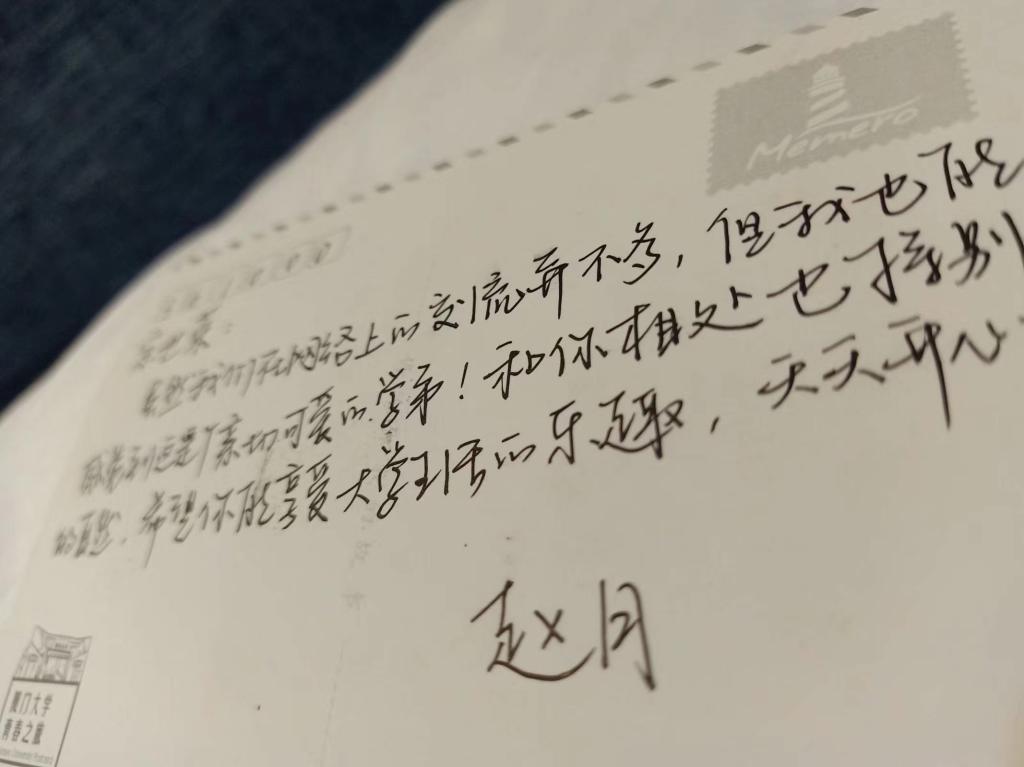 Memero
虽然我们在网络上的交流并不多,但我也能
感觉到你是个亲切可爱的学弟!和你相处也特别
的自然,希望你能享受大学生活的乐趣,天天开心
赵月
厦门大学
青春之旅